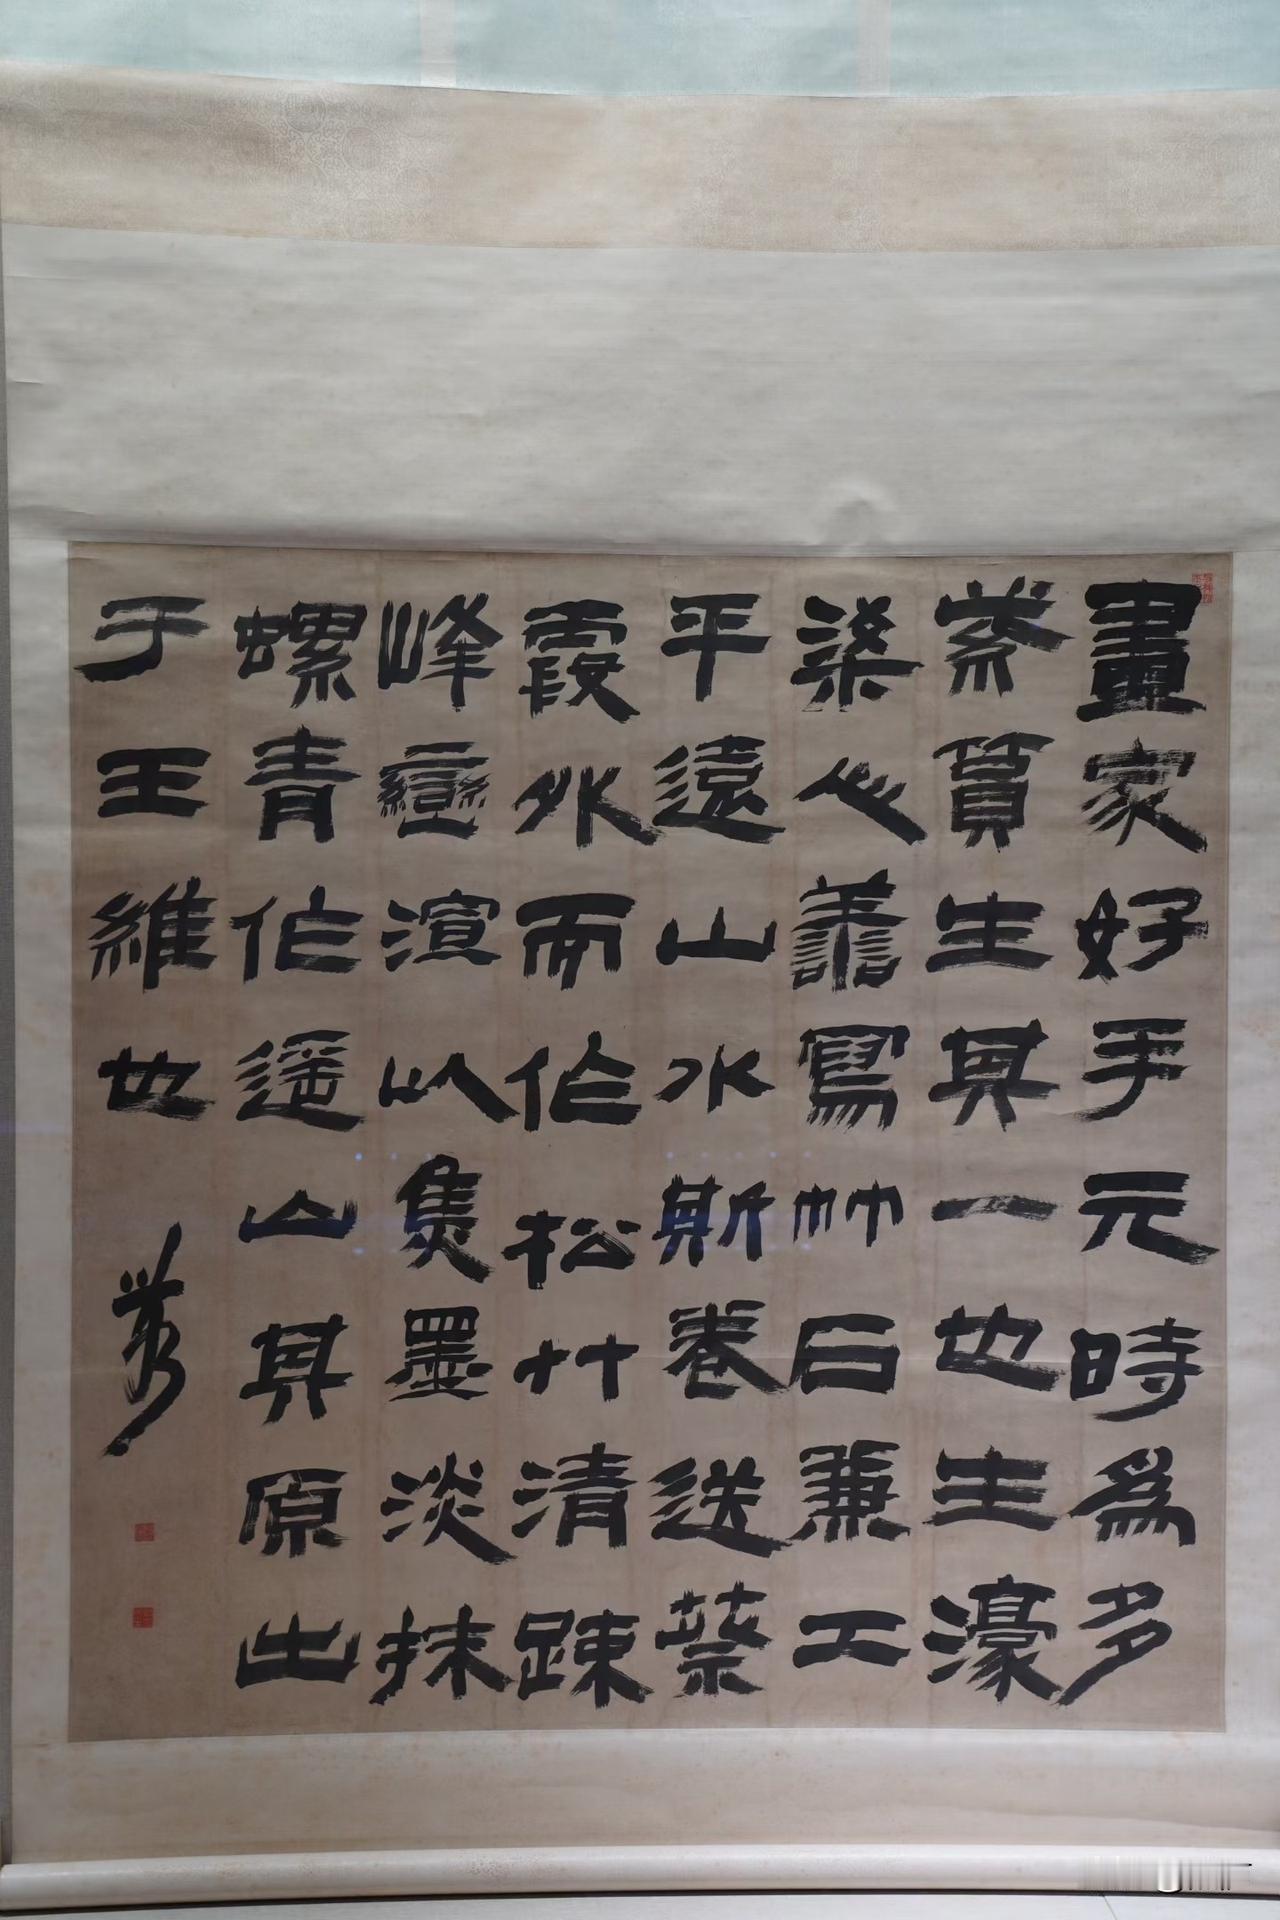 畫家好手元時為多
紫質生其一也生濠
梁心善寫竹石兼工
平遠山水斯卷送蔡
霞外而作松竹清疎
峰巒渲以焦墨淡抹
螺青作遥山其原出
于王維也